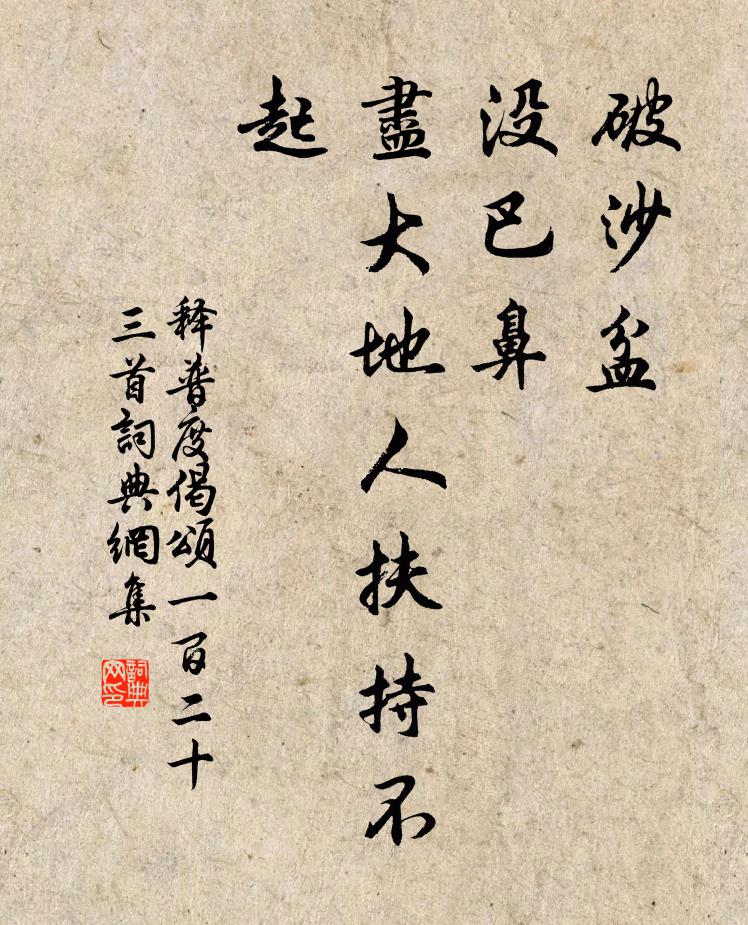 破沙盆
没巴鼻
盡大地人扶持不
起
释普度偈頌一百二十
三首詞典網集
詞典
网印